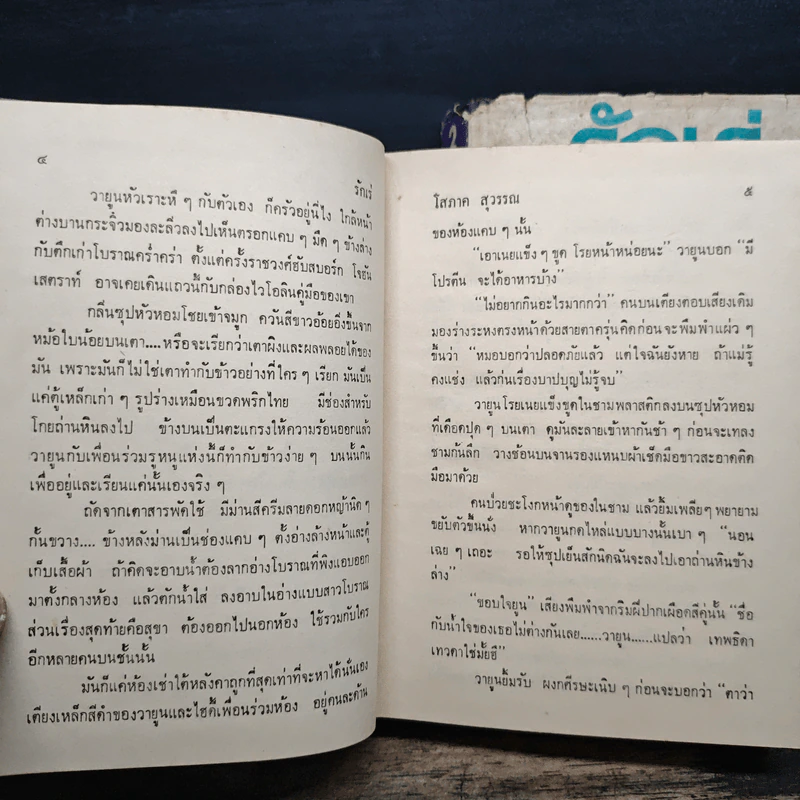 ๔
รักเร่
วายูนหัวเราะหึ ๆ กับตัวเอง ก็ครัวอยู่นี่ไง ใกล้หน้า
ต่างบานกระจิ๋วมองละลิ่วลงไปเห็นตรอกแคบ ๆ มืด ๆ ข้างล่าง
กับตึกเก่าโบราณคร่ำคร่า ตั้งแต่ครั้งราชวงศ์ฮับสบอร์ก โจฮัน
เสตราท์ อาจเคยเดินแถวนี้กับกล่องไวโอลินคู่มือของเขา
กลิ่นซุปหัวหอมโชยเข้าจมูก ควันสีขาวอ้อยอิ่งขึ้นจาก
หม้อใบน้อยบนเตา....หรือจะเรียกว่าเตาผิงและผลพลอยได้ของ
มัน เพราะมันก็ไม่ใช่เตาทำกับข้าวอย่างที่ใคร ๆ เรียก มันเป็น
แค่ตู้เหล็กเก่า ๆ รูปร่างเหมือนขวดพริกไทย มีช่องสำหรับ
โกยถ่านหินลงไป ข้างบนเป็นตะแกรงให้ความร้อนออกแล้ว
วายูนกับเพื่อนร่วมรูหนูแห่งนี้ก็ทำกับข้าวง่าย ๆ บนนั้นกิน
เพื่ออยู่และเรียนแค่นั้นเองจริง ๆ
ถัดจากเตาสารพัดใช้ มีม่านสีครีมลายดอกหญ้านิด ๆ
กั้นขวาง.... ข้างหลังม่านเป็นช่องแคบ ๆ ตั้งอ่างล้างหน้าและตู้
เก็บเสื้อผ้า ถ้าคิดจะอาบน้ำต้องลากอ่างโบราณที่พิงแอบออก
มาตั้งกลางห้อง แล้วตักน้ำใส่ ลงอาบในอ่างแบบสาวโบราณ
ส่วนเรื่องสุดท้ายคือสุขา ต้องออกไปนอกห้อง ใช้รวมกับใคร
อีกหลายคนบนชั้นนั้น
มันก็แค่ห้องเช่าใต้หลังคาถูกที่สุดเท่าที่จะหาได้นั่นเอง
เตียงเหล็กสีดำของวายูนและไฮดี้เพื่อนร่วมห้อง อยู่คนละด้าน
โสภาค สุวรรณ
๕
ของห้องแคบ ๆ นั้น
“เอาเนยแข็ง ๆ ขูด โรยหน้าหน่อยนะ” วายูนบอก “มี
โปรตีน จะได้อาหารบ้าง”
“ไม่อยากกินอะไรมากกว่า” คนบนเตียงตอบเสียงเดิม
มองร่างระหงตรงหน้าด้วยสายตาครุ่นคิดก่อนจะพึมพำแผ่ว ๆ
ขึ้นว่า “หมอบอกว่าปลอดภัยแล้ว แต่ใจฉันยังหาย ถ้าแม่รู้
คงแช่ง แล้วก่นเรื่องบาปบุญไม่รู้จบ”
วายูนโรยเนยแข็งขูดในชามพลาสติกลงบนซุปหัวหอม
ที่เดือดปุด ๆ บนเตา ดูมันละลายเข้าหากันช้า ๆ ก่อนจะเทลง
ชามก้นลึก วางช้อนบนจานรองแหนบผ้าเช็ดมือขาวสะอาดติด
มือมาด้วย
คนป่วยชะโงกหน้าดูของในชาม แล้วยิ้มเพลีย ๆ พยายาม
ขยับตัวขึ้นนั่ง หากวายูนกดไหล่แบบบางนั้นเบา ๆ “นอน
เฉย ๆ เถอะ รอให้ซุปเย็นสักนิดฉันจะลงไปเอาถ่านหินข้าง
ล่าง”
“ขอบใจยูน” เสียงพึมพำจากริมฝีปากเผือดสีคู่นั้น “ชื่อ
กับน้ำใจของเธอไม่ต่างกันเลย......วายูน......แปลว่า เทพธิดา
เทวดาใช่มั้ยฮึ”
วายูนยิ้มรับ ผงกศีรษะเนิบ ๆ ก่อนจะบอกว่า “ตาว่า
รักเร่